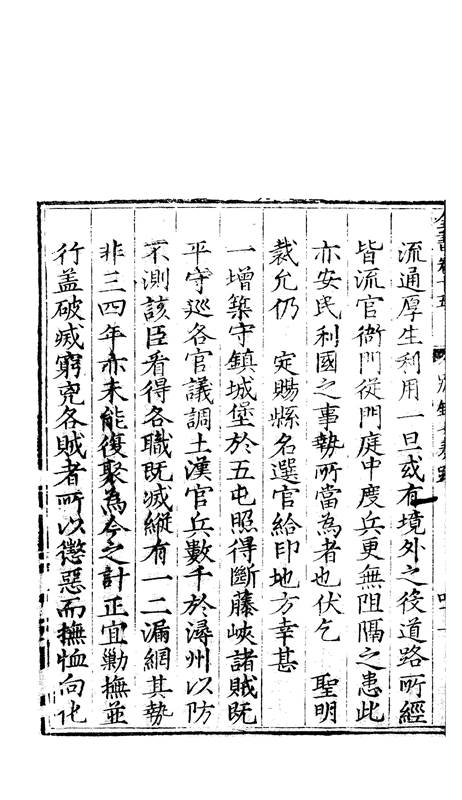 全書卷十五
流通厚生利用一旦或有境外之役道路所經
皆流官衙門從門庭中度兵更無阻隔之患此
亦安民利國之事勢所當為者也伏乞　聖明
裁允仍　定賜縣名選官給印地方幸甚
一增築守鎮城堡於五屯照得斷藤峽諸賊既
平守巡各官議調土漢官兵數千於潯州以防
不測該臣看得各職既滅縱有一二漏網其勢
非三四年亦未能復聚為今之計正宜勦撫並
行盖破滅窮兇各賊者所以懲惡而撫恤向化